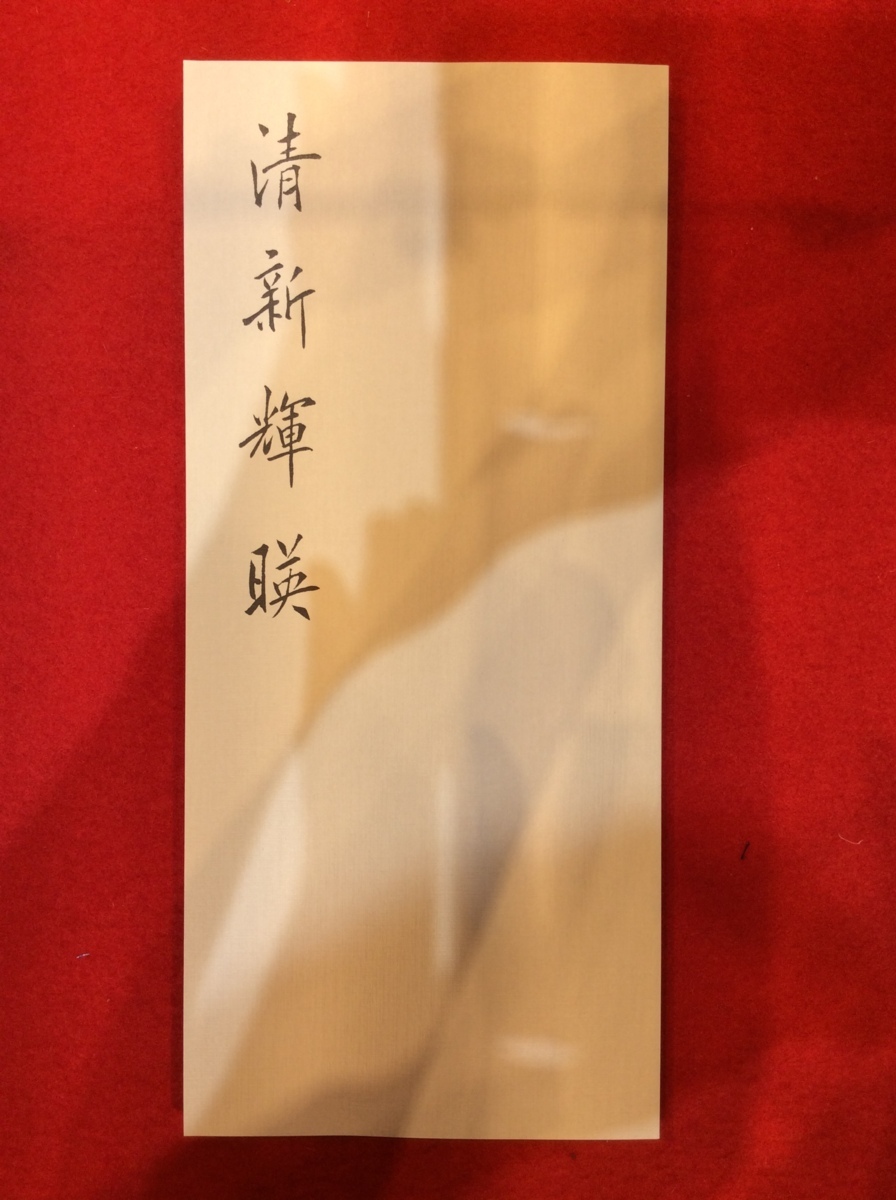 清新輝暎